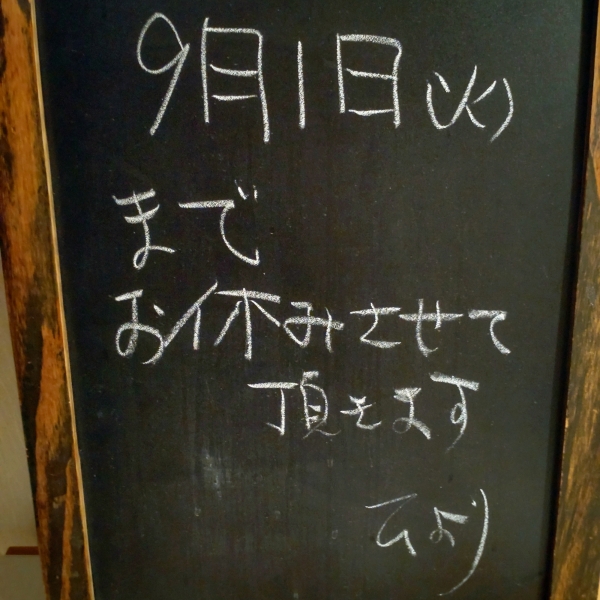 9月1日(火)
まで
お休みさせて
頂きます
てより